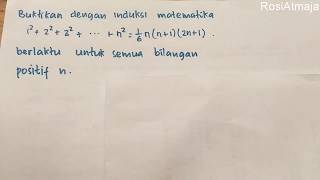 RosiAtmaja
Buktikan dengan induksi matematika
1² + 2² + 3² + ... + n² = 1/6 n(n+1)(2n+1).
berlaku untuk semua bilangan
positif n.